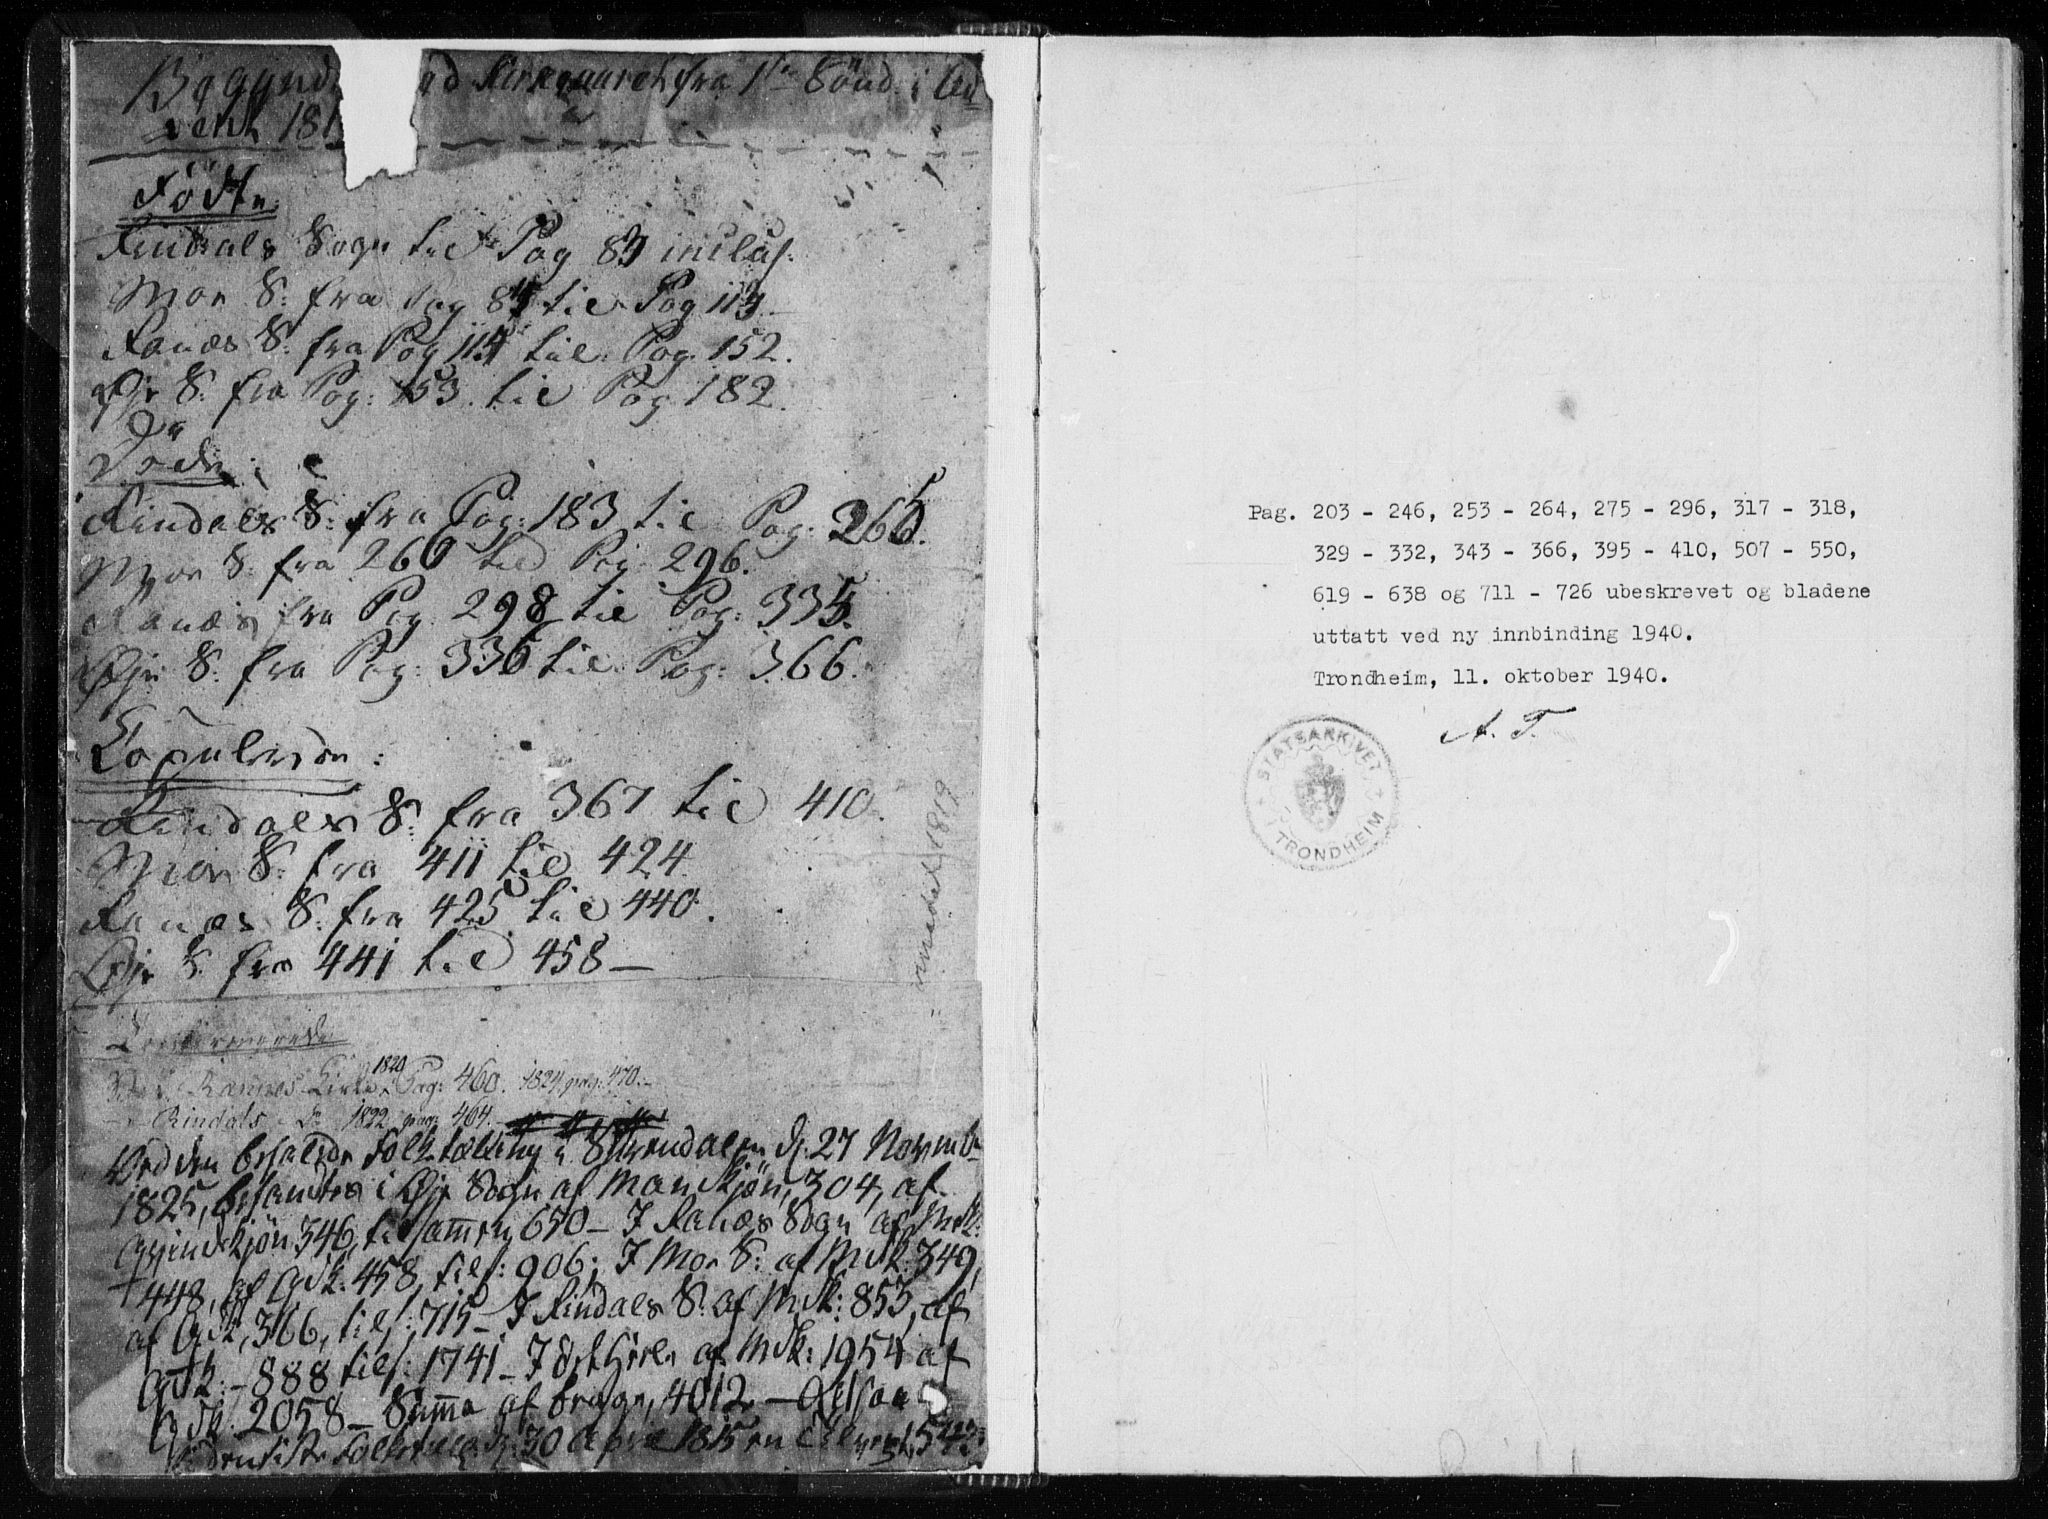 Begynd ad Kirkeaaret fra 1te Sönd: i Ad
vent 181
Födte
Rindals Sogn til Pag 83 inclus:
Moe S: fra Pag 84 til Pag 113
Ranæs S: fra Pag 114 til Pag. 152.
Øje S: fra Pag: 153 til Pag 182.
Döde:
Rindals S: fra Pag: 183 til Pag: 265.
Moe S: fra 266 til Pag: 296.
Ranæs fra Pag. 298 til Pag: 335.
Øje S: fra Pag: 336 til Pag: 366.
Copulerede:
Rindals S: fra 367 til 410.
Moe S: fra 411 til 424
Ranæs S: fra 425 til 440.
Øje S. fra 441 til 458 —
Surendal 1819
Confirmerede
Ved Ranæs Kirke 1820 Pag: 460. 1824 pag: 470.—
— Rindals do 1822 pag: 464.
Ved den befalede Folketælling i Surendalen d. 27 Novembr
1825, befandtes i Øje Sogn af Mandkjön, 304, af
Qvindekjön 346, tilsammen 650 — I Ranæs Sogn af MK:
448, af QdK: 458, tils: 906; I Moe S: af MdK: 349,
af QdK, 366, tils: 715 — I Rindals S: af MdK: 853, af
QdK: — 888 tils: 1741 — I det Hele af MdK: 1954 af
QdK. 2058 — Summa af begge, 4012 —
sidste d: 30 April 1815 en
Pag. 203 - 246, 253 - 264, 275 - 296, 317 - 318,
329 - 332, 343 - 366, 395 - 410, 507 - 550,
619 - 638 og 711 - 726 ubeskrevet og bladene
uttatt ved ny innbinding 1940.
Trondheim, 11. oktober 1940.
A. T.
STATSARKIVET I TRONDHEIM